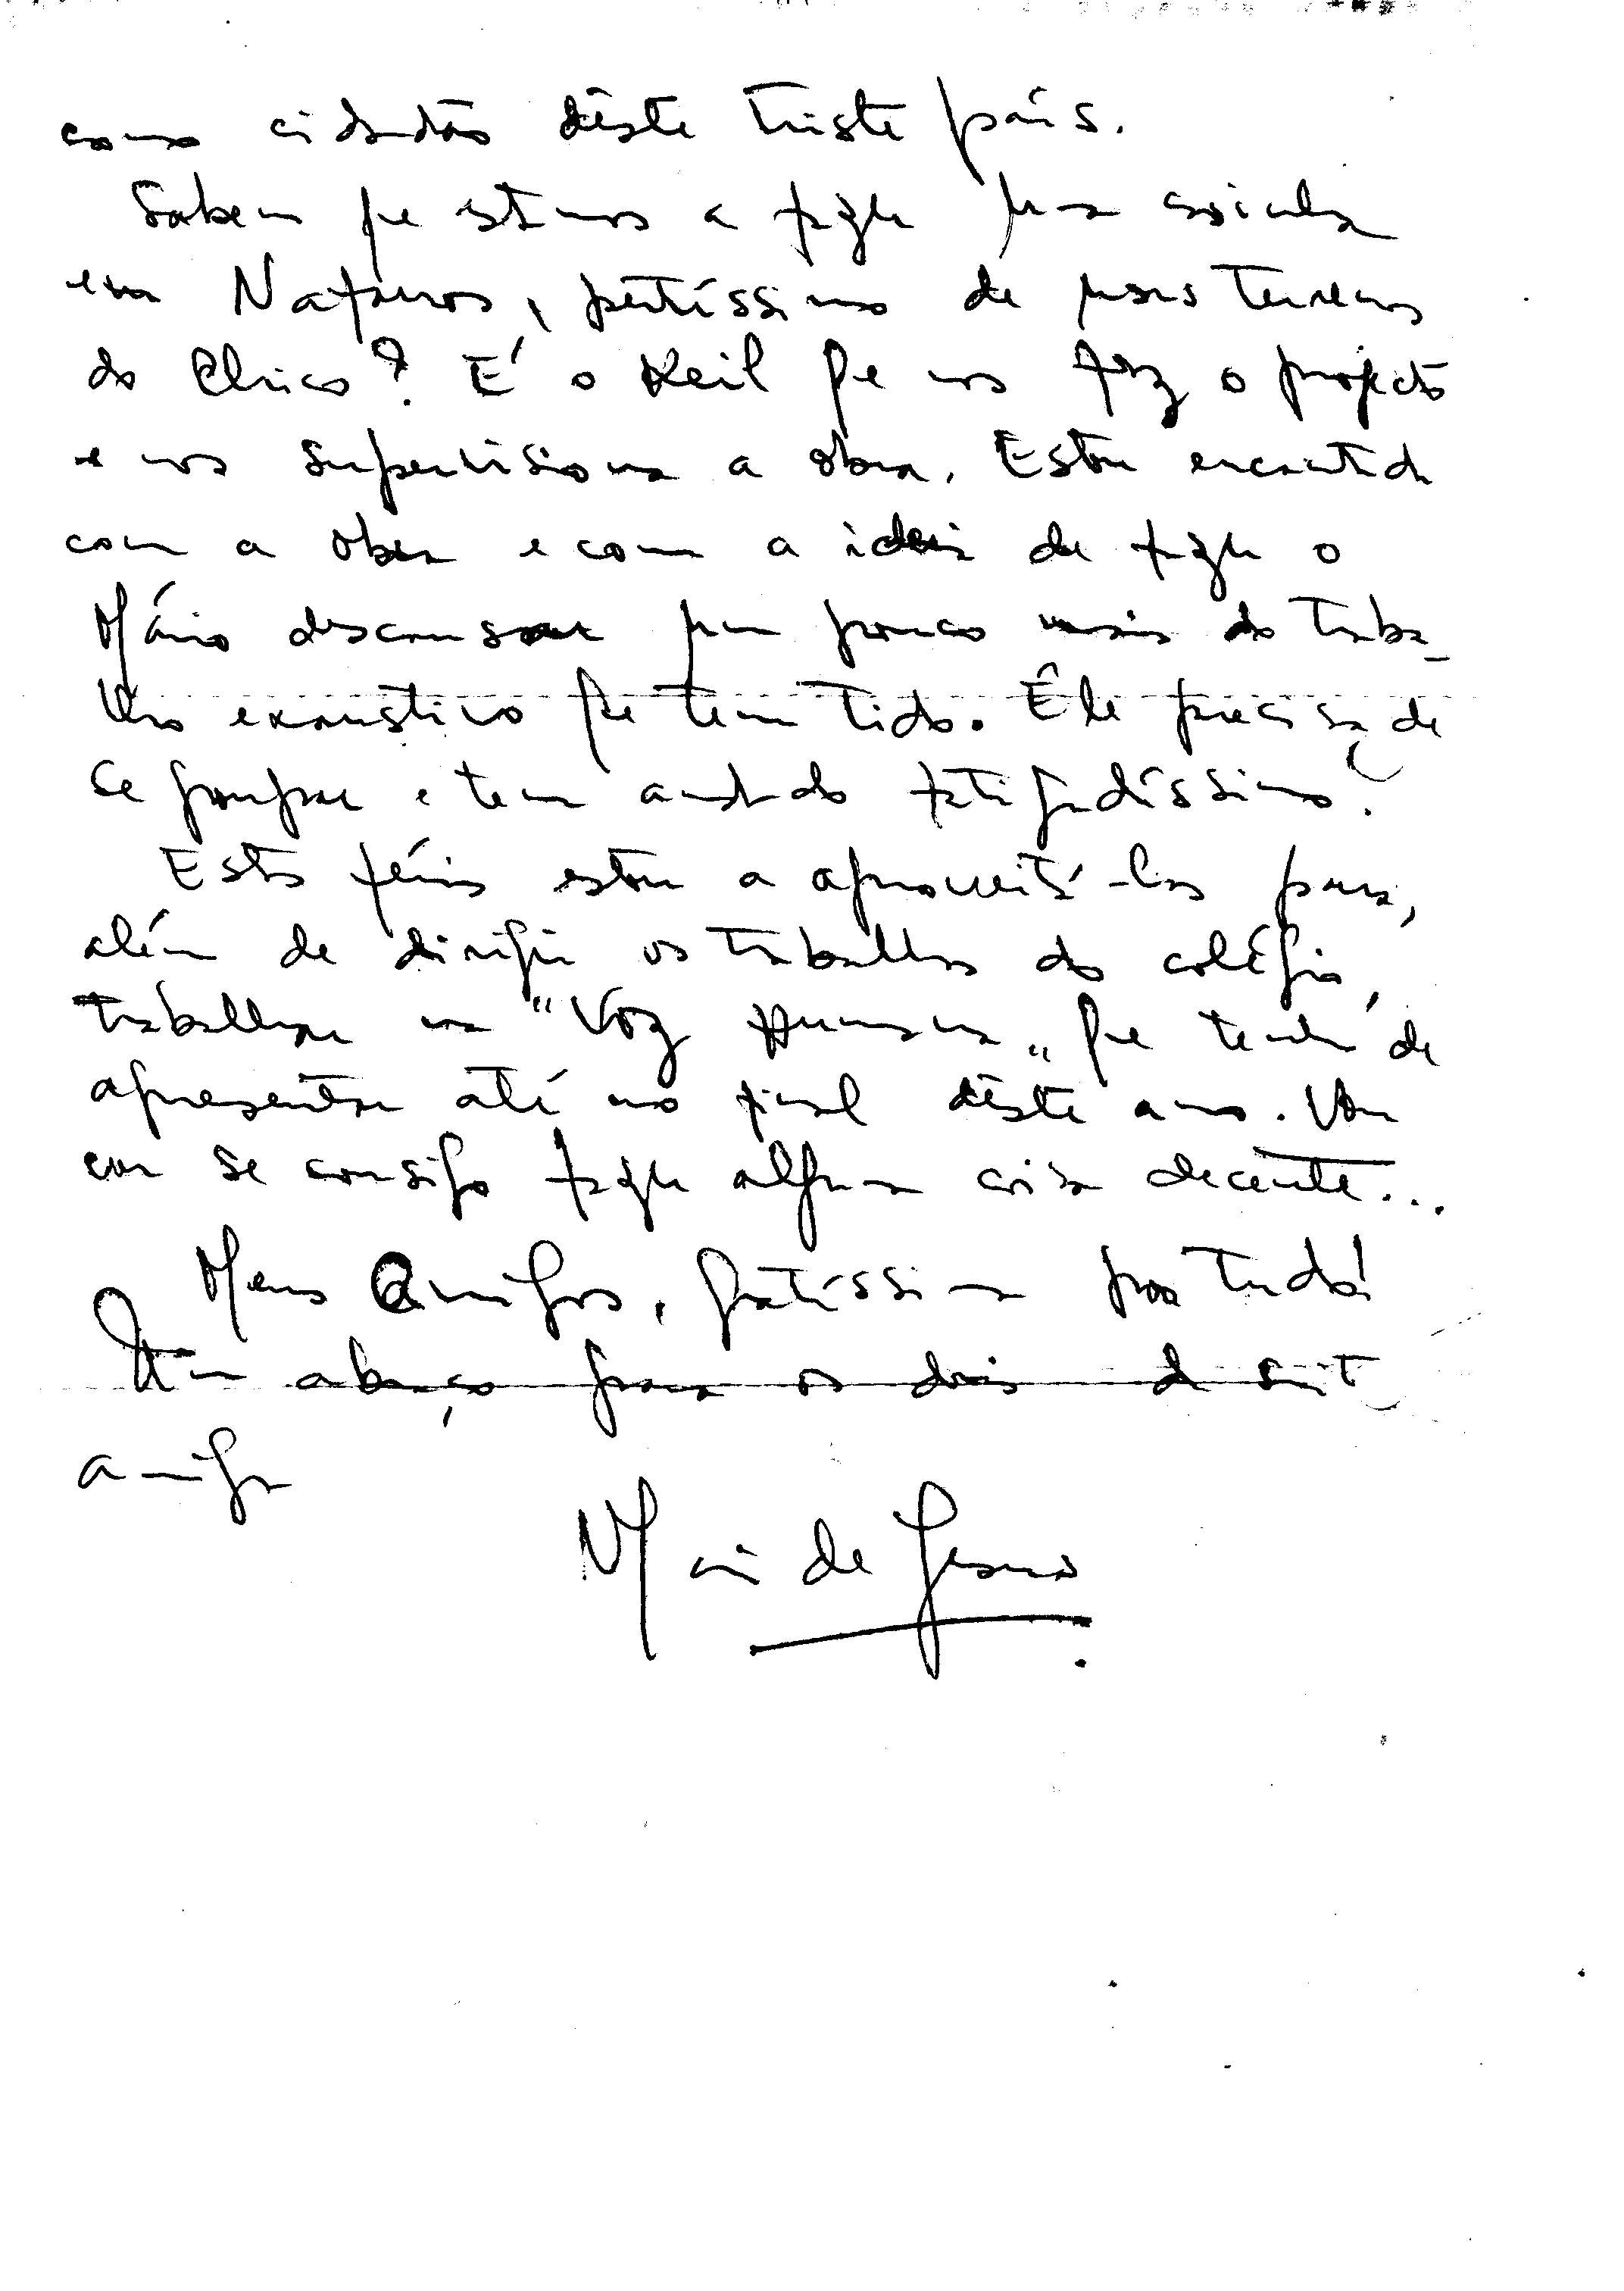 como cidadão dêste triste país.
Sabem que estamos a fazer uma casinha
em Nafarros, pertíssimo de uns terrenos
do Chico? É o Keil que nos fez o projecto
e nos supervisiona a obra. Estou encantada
com a obra e com a ideia de fazer o
Mário descansar um pouco mais do traba-
lho exaustivo que tem tido. Êle precisa de
se poupar e tem andado fatigadíssimo.
Estas férias estou a aproveitá-las para,
além de dirigir os trabalhos do colégio,
trabalhar na "Voz Humana" que tenho de
apresentar até ao final dêste ano. Vou
ver se consigo fazer alguma coisa decente...
Meus Amigos, gratíssima por tudo!
Um abraço para os dois da
amiga
Maria de Jesus